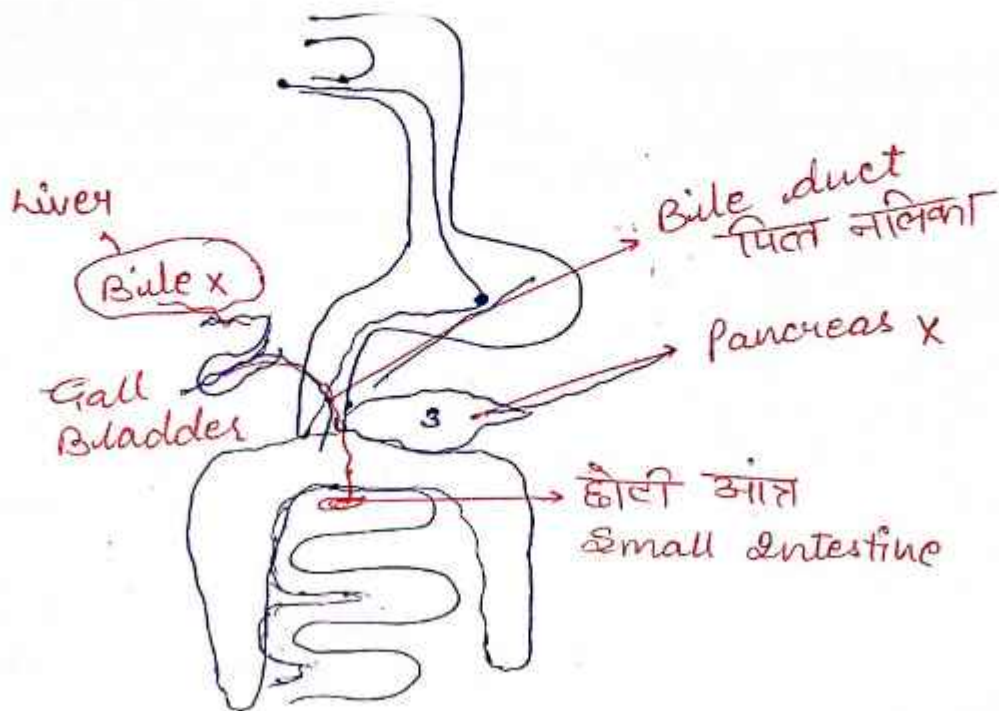 Liver
Bile x
Gall
Bladder
Bile duct
पित्त नलिका
Pancreas x
3
छोटी आंत्र
Small Intestine